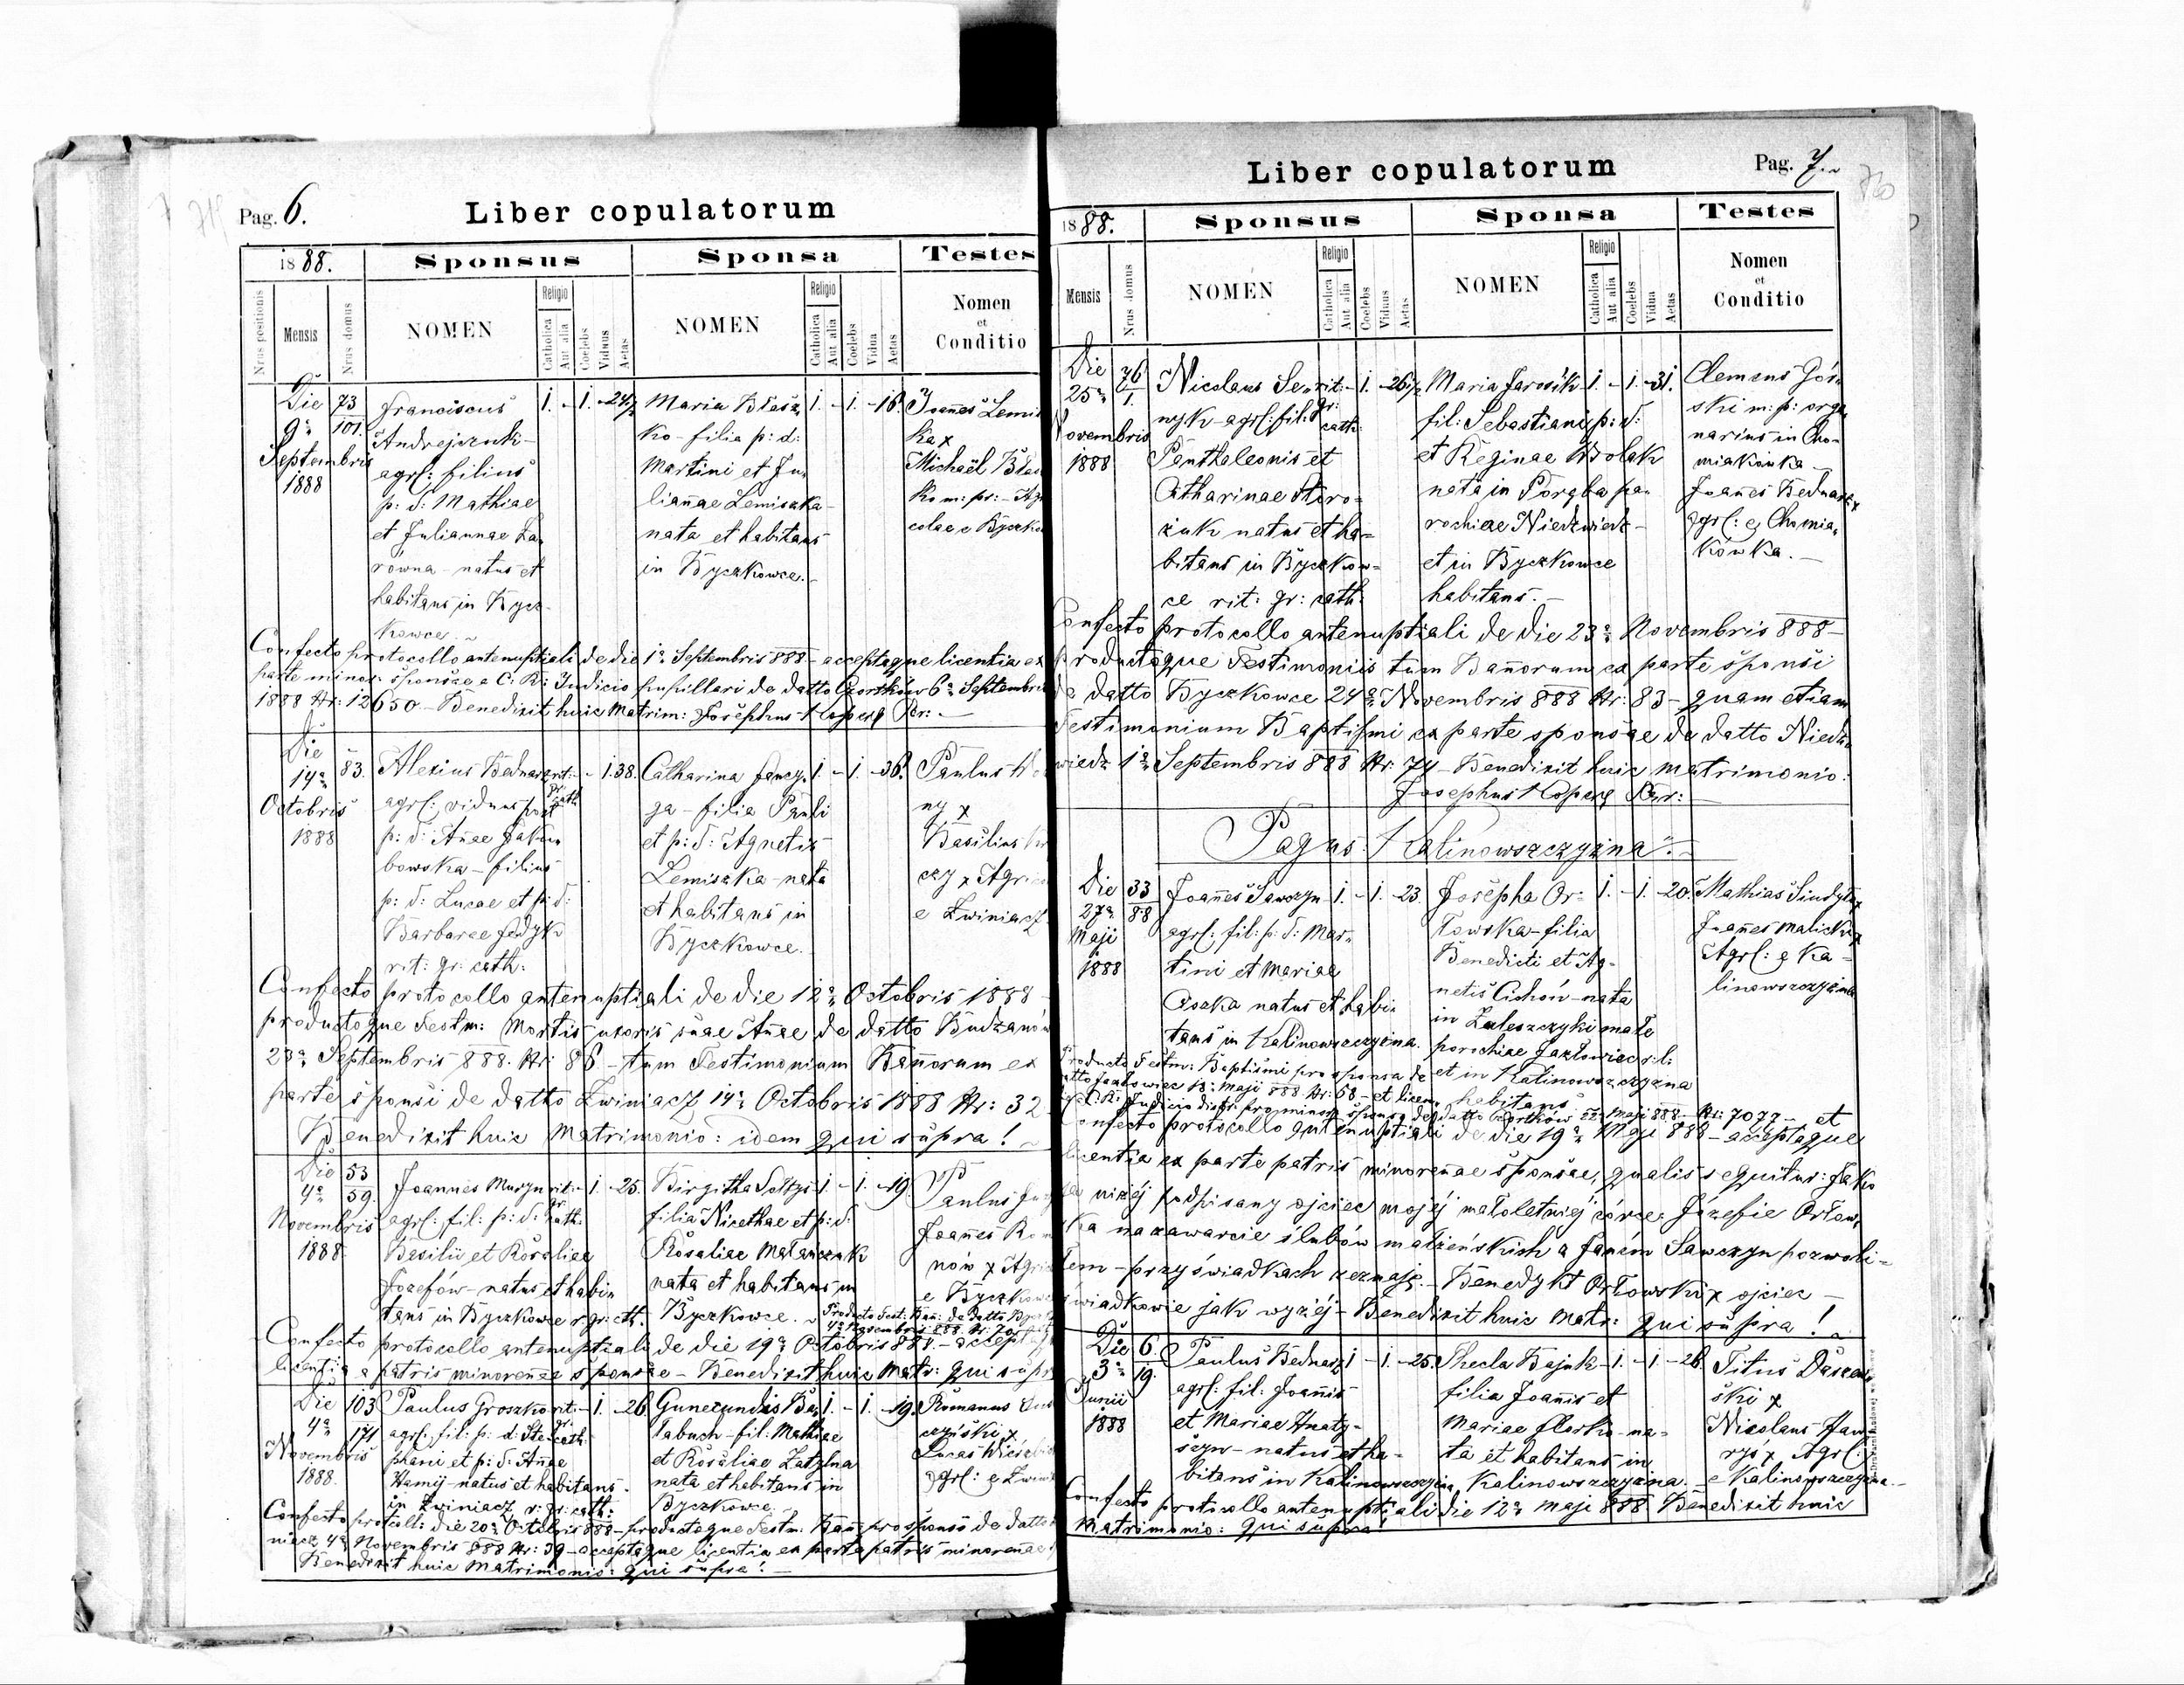 Pag. 6.
Liber copulatorum
1888.
Sponsus
Sponsa
Testes
Nrus positionis
Mensis
Nrus domus
NOMEN
Religio
Catholica
Aut alia
Coelebs
Viduus
Aetas
NOMEN
Religio
Catholica
Aut alia
Coelebs
Vidua
Aetas
Nomen
et
Conditio
Die
9a
Septembris
1888
73
101.
Franciscus
Andrejczuk-
agrl: filius
p: d: Mathiae
et Juliannae
rowna - natus et
habitans in Bycz-
kowce.
1. - 1. - 24½
Maria Błasz
ko - filia p: d:
Martini et Ju
liannae Lemiszka
nata et habitans
in Byczkowce.
1. - 1. - 18.
Joannes Lemi
ka x
Michaël Bła
ko m: pr: - Ag
colae e Byczko
Confecto protocollo antenuptiali de die 1a Septembris 888 - acceptaque licentia ex
parte minor: sponsae a C: R: Judicio pupillari de datto Czortków 6a Septembr
1888 Nr: 12650 - Benedixit huic Matrim: Josephus
Die
14a
Octobris
1888
83.
Alexius Bednarz rit:
agrl: viduus post gr: cath
p: d: Annae Jaku
bowska - filius
p: d: Lucae et p: d:
Barbarae Jedyk
rit: gr: cath:
- 1. 38.
Catharina Jancy
ga - filia Pauli
et p: d: Agnetis
Lemiszka - nata
et habitans in
Byczkowce.
1. - 1. - 36.
Paulus
ny x
Basilius
czy x Agri
e Zwiniacz
Confecto protocollo antenuptiali de die 12a Octobris 1888 -
productoque Testm: Mortis uxoris suae Annae de datto Budzanów
23a Septembris 888. Nr: 86 - tum Testimonium Bannorum ex
parte sponsi de datto Zwiniacz 14a Octobris 1888 Nr: 32
Benedixit huic Matrimonio: idem qui supra!
Die
4a
Novembris
1888
53
59.
Joannes Muryn rit: gr:
agrl: fil: p: d: cath:
Basilii et Rosaliae
Jozefów - natus et habi
tans in Byczkowce r. gr: cth.
- 1. - 25.
Birgitha Soltys
filia Nicethae et p: d:
Rosaliae Matanczuk
nata et habitans in
Byczkowce.
1. - 1. - 19.
Paulus
Joannes
nów x Agri
e Byczkowce
Producto Test: Bann: de datto
4a Novembris 888 Nr: 70
Confecto protocollo antenuptiali de die 19a Octobris 888. - accept
licentia a patris minorennae sponsae - Benedixit huic Matr: qui supr
Die
4a
Novembris
1888.
103
171
Paulus Groszko rit: gr:
agrl: fil: p: d: Ste cath:
phani et p: d: Annae
Hamij - natus et habitans
in Zwiniacz r: gr: cath:
- 1. - 26.
Gunecundis Ba
labuch - fil: Mathiae
et Rosaliae Zatylna
nata et habitans in
Byczkowce.
1. - 1. - 19.
Romanus
czyński x
Lucas
agrl: e Zwini
Confecto protcolli die 20a Octobris 888 - productoque Testm: Bann: pro sponso de datto
niacz 4a Novembris 888 Nr: 39 - acceptaque licentia ex parte patris minorennae
Benedixit huic Matrimonio: qui supra!
Pag. 7.
Liber copulatorum
1888.
Sponsus
Sponsa
Testes
Mensis
Nrus domus
NOMEN
Religio
Catholica
Aut alia
Coelebs
Viduus
Aetas
NOMEN
Religio
Catholica
Aut alia
Coelebs
Vidua
Aetas
Nomen
et
Conditio
Die
25a
Novembris
1888
76
1.
Nicolaus Se rit:
nyk - agrl: fil: gr: cath:
Panthaleonis et
Catharinae Storo=
żuk natus et ha=
bitans in Byczkow=
ce rit: gr: cath:
- 1. - 26½
Maria Jarosik
fil: Sebastiani p: d:
et Reginae Wolak
nata in Poręba pa
rochiae Niedzwiedz -
et in Byczkowce
habitans. -
1. - 1. - 31.
Clemens Gór
ski m: p: orga
narius in Cho-
miakówka -
Joannes Bednarz x
agrl: e Chomia
kówka. -
Confecto protocollo antenuptiali de die 23a Novembris 888 -
productoque Testimoniis tum Bannorum ex parte sponsi
de datto Byczkowce 24a Novembris 888 Nr: 83 - quam etiam
Testimonium Baptismi ex parte sponsae de datto Niedz
wiedz 1a Septembris 888 Nr: 74 - Benedixit huic matrimonio:
Josephus
Pagus: Kalinowszczyzna.
Die
27a
Maji
1888
33
88
Joannes Sawczyn
agrl: fil: p: d: Mar
tini et Mariae
Oszka natus et habi
tans in Kalinowszczyzna.
1. - 1. - 23.
Josepha Or=
łowska - filia
Benedicti et Ag-
netis Cichoń - nata
in Zaleszczyki małe
parochiae Jazłowiec r: l:
et in Kalinowszczyzna
habitans
1. - 1. - 20.
Mathias x
Joannes Malicki x
Agrl: e Ka-
linowszczyzna
Producto Testm: Baptismi pro sponsa de
datto Jazłowiec 18a Maji 888 Nr: 58 - et licen
C: R: Judicio distr: pro minor: sponsa de datto Czortków 22a Maji 888 - Nr: 7077 - et
Confecto protocollo antenuptiali de die 19a Maji 888 - acceptaque
licentia ex parte patris minorennae sponsae, qualis sequitur: Jako
niżéj podpisany ojciec mojéj małoletniéj córce: Józefie Orłow
ska na zawarcie ślubów małżeńskich z Janém Sawczyn pozwoli-
łem - przy świadkach zeznaję. - Benedykt Orłowski x ojciec -
świadkowie jak wyżéj - Benedixit huic Matr: qui supra!
Die
3a
Junii
1888
6.
19.
Paulus Bednarz
agrl: fil: Joannis
et Mariae Hnaty-
szyn - natus et ha-
bitans in Kalinowszczyzna
1 - 1. - 25.
Thecla Bajuk
filia Joannis et
Mariae Horko - na-
ta et habitans in
Kalinowszczyzna.
1. - 1. - 26.
Titus
ski x
Nicolaus
rys x Agrl:
e Kalinowszczyzna.
Confecto protocollo antenuptiali die 12a Maji 888 Benedixit huic
Matrimonio: qui supra!